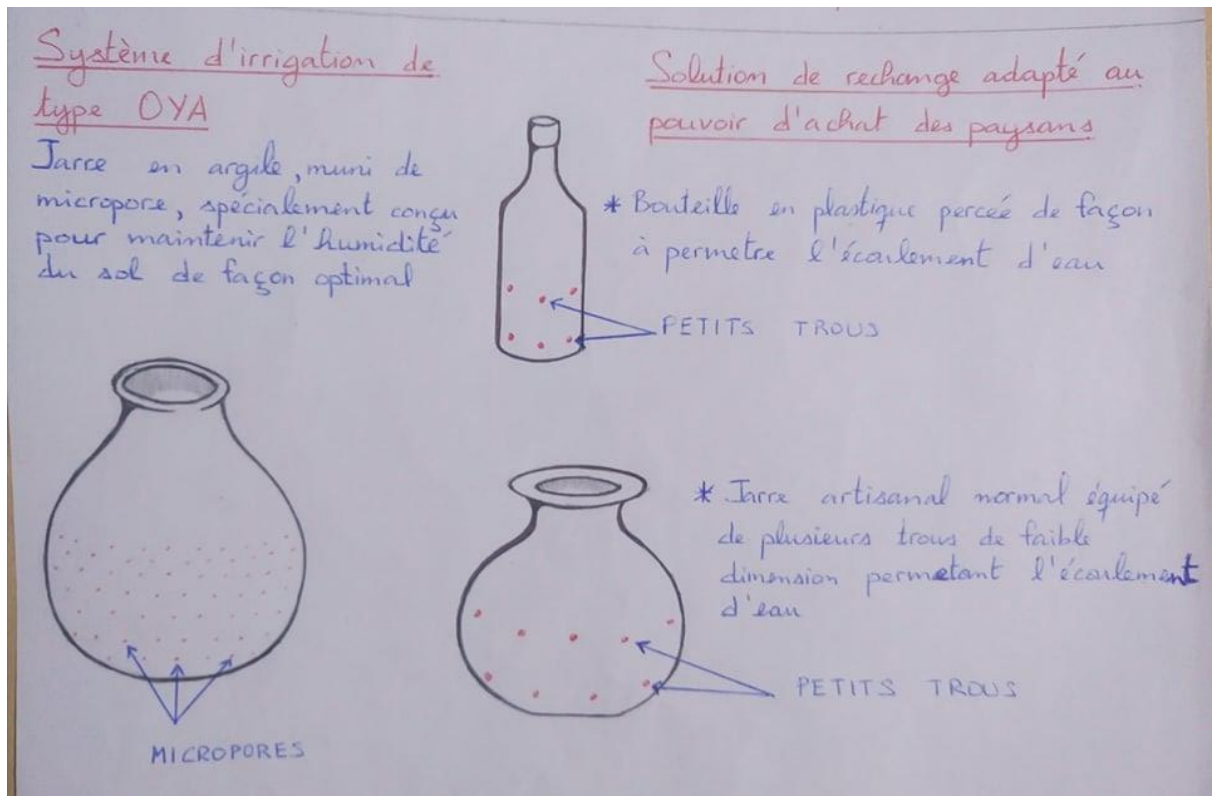 Système d'irrigation de
type OYA
Jarre en argile, muni de
micropore, spécialement conçu
pour maintenir l'humidité
du sol de façon optimal
MICROPORES
Solution de rechange adapté au
pouvoir d'achat des paysans
* Bouteille en plastique percée de façon
à permetre l'écoulement d'eau
PETITS TROUS
* Jarre artisanal normal équipé
de plusieurs trous de faible
dimension permetant l'écoulement
d'eau
PETITS TROUS